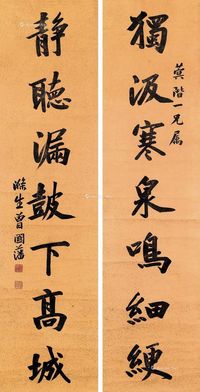 獨汲寒泉鳴細綆
蓂階一兄屬
静聽漏鼓下高城
滌生曾國藩